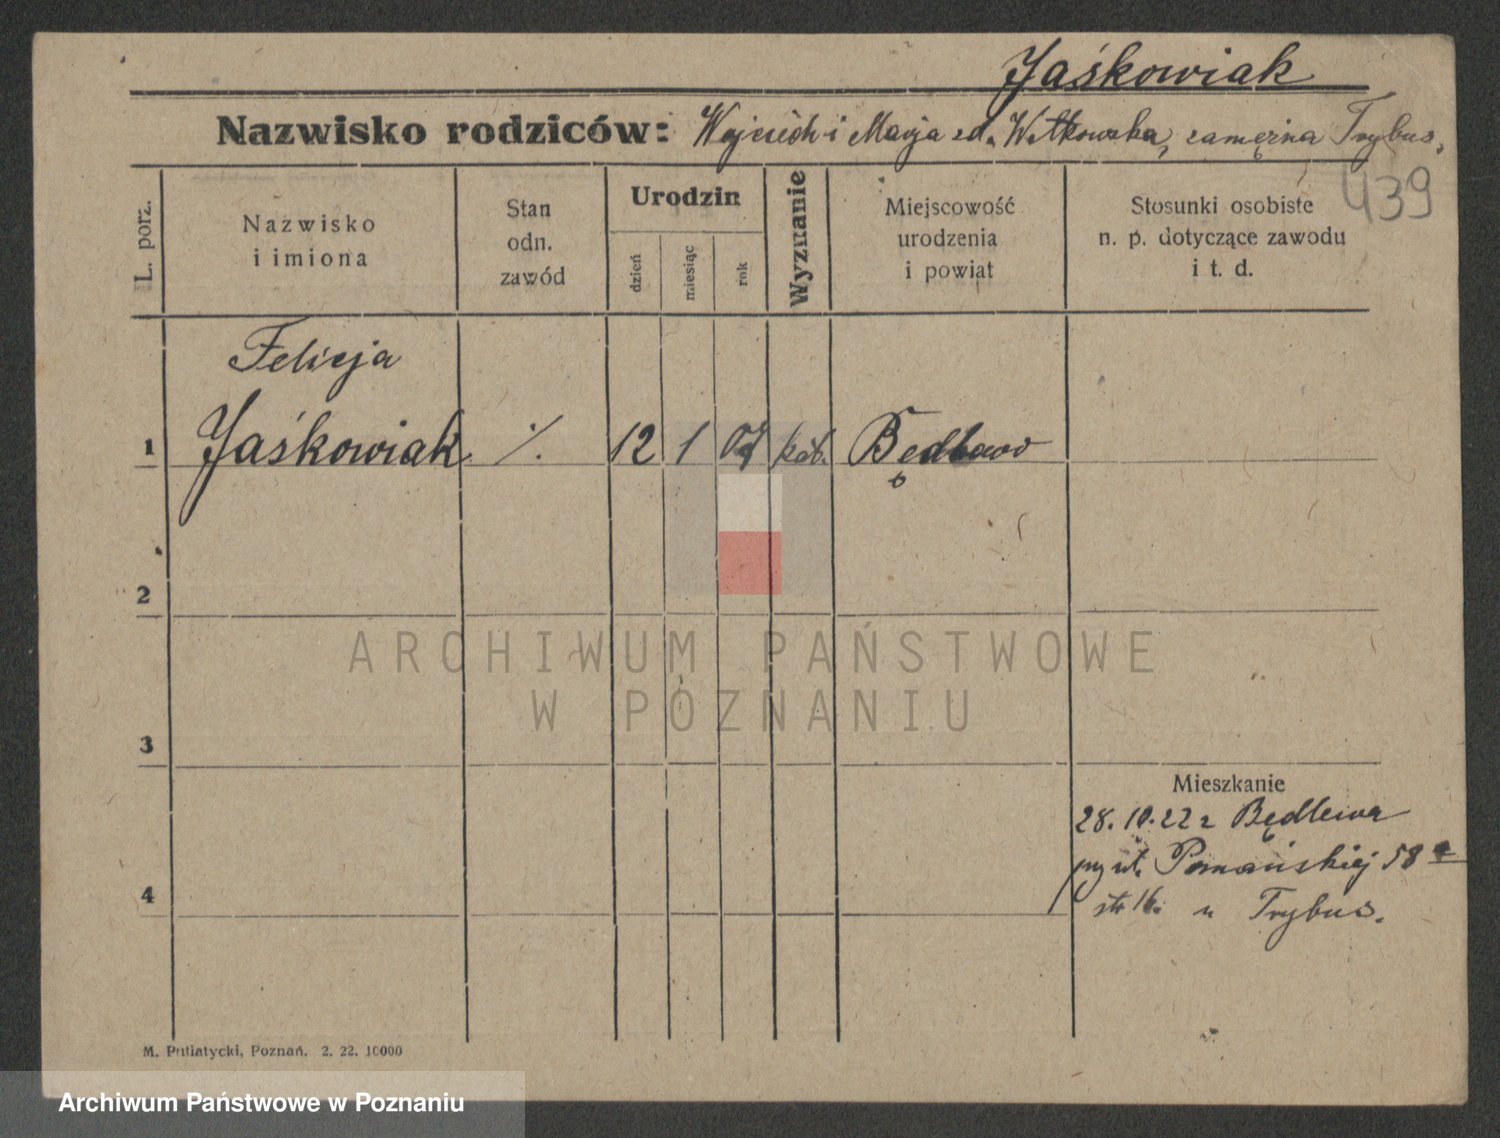 Jaśkowiak
Nazwisko rodziców: Wojciech i Marja zd. Witkowska, zamężna Trybus.
439
L. porz.
Nazwisko
i imiona
Stan
odn.
zawód
Urodzin
dzień
miesiąc
rok
Wyznanie
Miejscowość
urodzenia
i powiat
Stosunki osobiste
n. p. dotyczące zawodu
i t. d.
Felicja
1 Jaśkowiak ./. 12 1 07 kat.
2
ARCHIWUM PAŃSTWOWE
W POZNANIU
3
Mieszkanie
28.10.22 z Będlewa
przy ul. Poznańskiej 58
4
str 16. u Trybus.
M. Putiatycki, Poznań. 2. 22. 10000
Archiwum Państwowe w Poznaniu